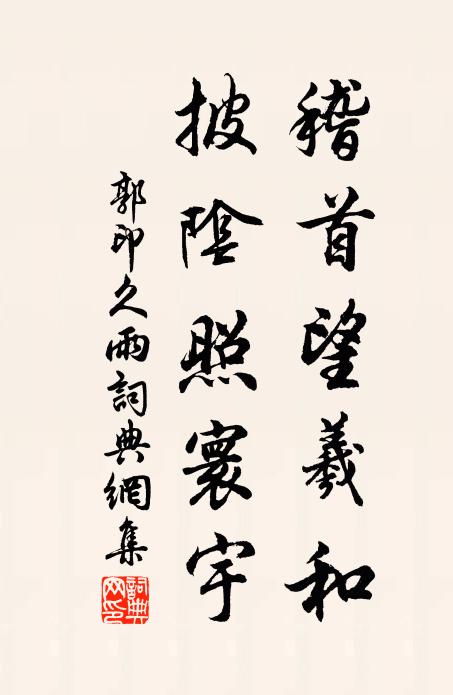 稽首望羲和
披陰照寰宇
郭印久雨詞典網集
詞典網印